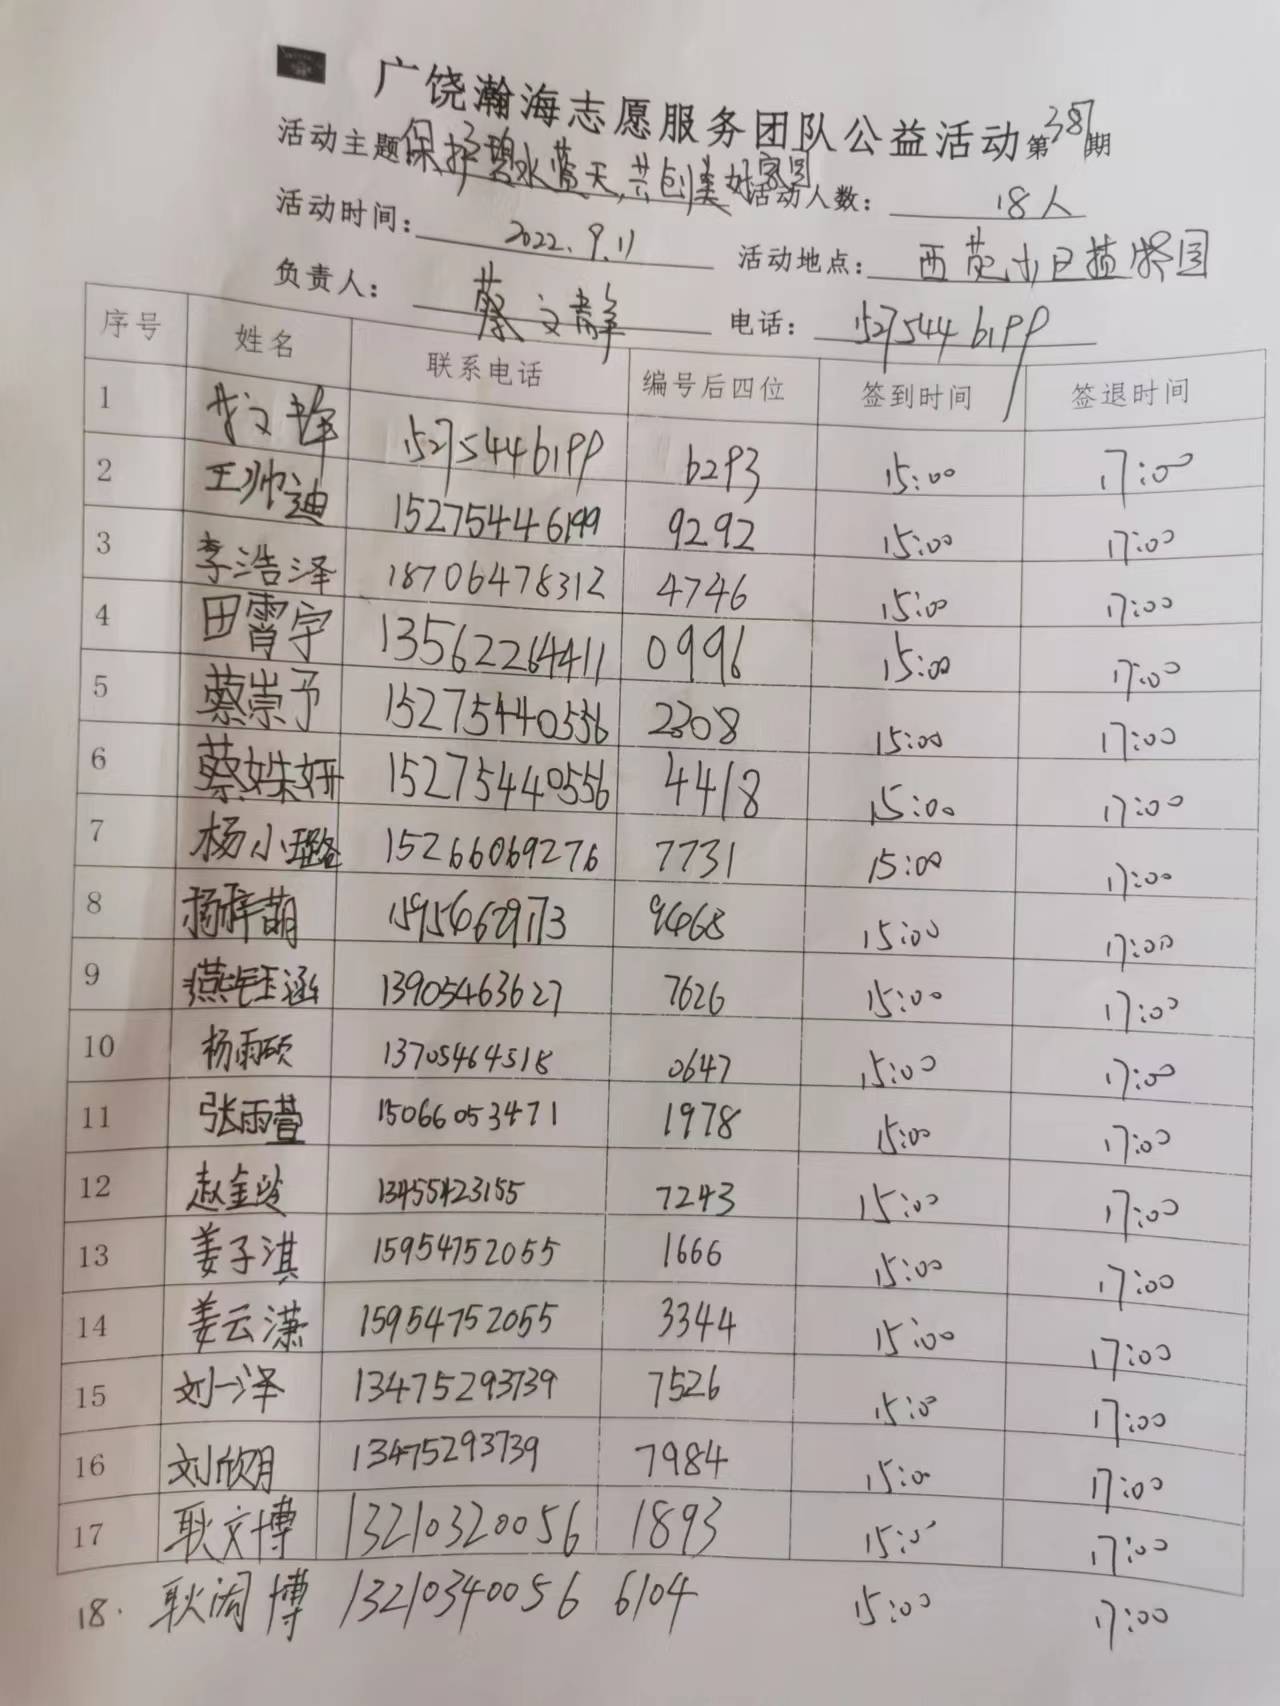 广饶瀚海志愿服务团队公益活动第387期
活动主题保护碧水蓝天,共创美好家园 活动人数: 18人
活动时间: 2022.9.11 活动地点: 西苑小区
负责人: 蔡文静 电话: 15275446199
序号 姓名 联系电话 编号后四位 签到时间 签退时间
1 15275446199 6293 15:00 17:00
2 王帅迪 15275446199 9292 15:00 17:00
3 李浩泽 18706478312 4746 15:00 17:00
4 田霄宇 13562264411 0996 15:00 17:00
5 蔡崇予 15275440556 2308 15:00 17:00
6 蔡姝妍 15275440556 4418 15:00 17:00
7 杨小璐 15266069276 7731 15:00 17:00
8 杨梓萌 15954629173 9468 15:00 17:00
9 燕钰涵 13905463627 7626 15:00 17:00
10 杨雨硕 13705464518 0647 15:00 17:00
11 张雨萱 15066053471 1978 15:00 17:00
12 赵金 13455423155 7243 15:00 17:00
13 姜子淇 15954752055 1666 15:00 17:00
14 姜云潇 15954752055 3344 15:00 17:00
15 刘一泽 13475293739 7526 15:00 17:00
16 刘欣月 13475293739 7984 15:00 17:00
17 耿文博 13210320056 1893 15:00 17:00
18. 耿闳博 13210340056 6104 15:00 17:00